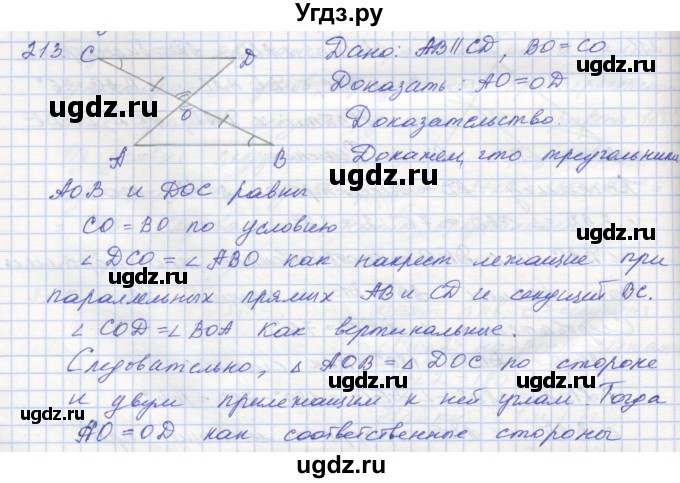 Угдз.ру
213. C D Дано: AB ∥ CD, BO = CO
ugdz.ru ugdz.ru
Доказать: AO = OD
O
Доказательство:
ugdz.ru
A B Докажем, что треугольники
AOB и DOC равны
ugdz.ru
CO = BO по условию
∠ DCO = ∠ ABO как накрест лежащие при
параллельных прямых AB и CD и секущей BC.
ugdz.ru ugdz.ru
∠ COD = ∠ BOA как вертикальные.
Следовательно, △ AOB = △ DOC по стороне
ugdz.ru
и двум прилежащим к ней углам Тогда
ugdz.ru ugdz.ru
AO = OD как соответственные стороны
ugdz.ru